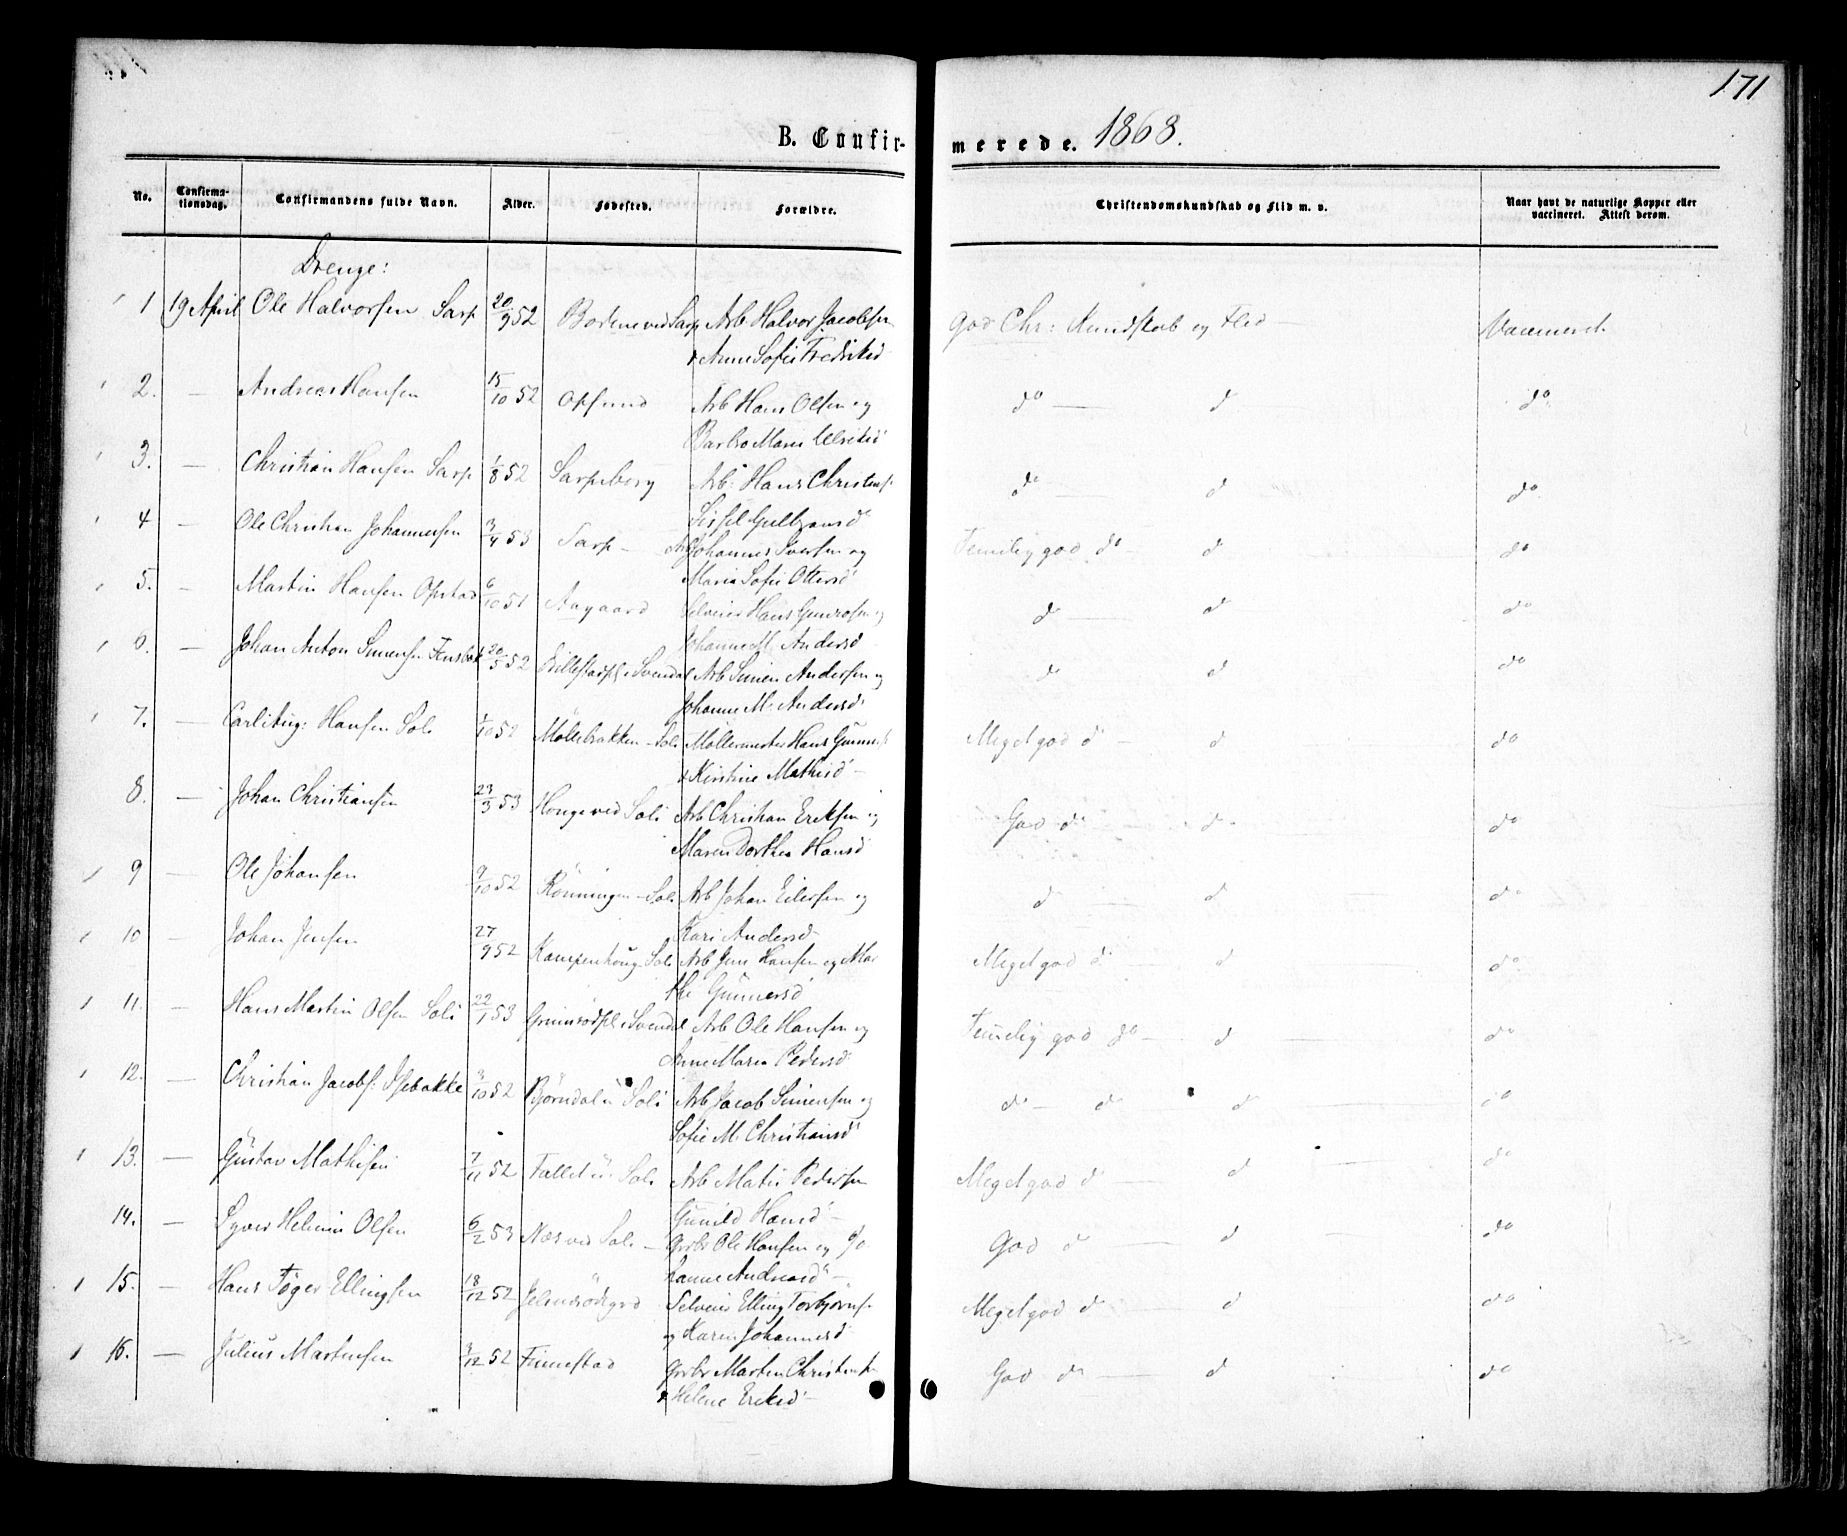 171
B. Confirmerede. 1868.
No. Confirmationsdag. Confirmandens fulde Navn. Alder. Fødested. Forældre. Christendomskundskab og Flid m. v. Naar havt de naturlige Kopper eller vaccineret. Attest derom.
Drenge:
1 19 April Ole Halvorsen Sarp 20/9 52 Bodene ved Sarp Arb Halvor Jacobsen God Chr: Kundskab og Flid — Vaccineret
& Anne Sofie Fredriksd
2. — Andreas Hansen 15/10 52 Opsund Arb Hans Olsen og do — d do
Barbro Marie Ulriksd
3. — Christian Hansen Sarp 1/8 52 Sarpsborg Arb: Hans Christens do — d do
Sissel Gulbransd
4 — Ole Christian Johannessen 3/4 53 Sarp — Arb Johannes Iversen og Temelig god do — d do
Maria Sofie Ottersd
5. — Martin Hansen Opstad 6/10 51 Aagaard Selveier Hans Gundrosen og d — d do
Johanne M. Andersd
6. — Johan Anton Simensen Finsbøk 20/5 52 Billestadpl i Svendal Arb Simen Andersen og d d do
Johanne M. Andersd
7. — Carl Aug: Hansen Soli 1/10 52 Møllebakken — Soli Møllermester Hans Gunners Meget god d — d do
& Kirstine Mathisd —
8. — Johan Christiansen 23/3 53 Honge ved Soli Arb Christian Eriksen og God d — d do
Maren Dorthea Hansd
9 — Ole Johansen 9/10 52 Rønningen — Soli Arb Johan Eilersen og d — d do
Kari Andersd
10 — Johan Jensen 27/9 52 Kampenhoug — Soli Arb Jens Hansen og Mar Meget god d d do
the Gunnersd
11. — Hans Martin Olsen Soli 22/1 53 Grimsrødpl i Svendal Arb Ole Hansen og Temelig god do — d do
Anne Maria Pedersd
12. — Christian Jacobs: Isebakke 3/10 52 Bjørndal u Soli Arb Jacob Simensen og do — d d do
Sofie M. Christiansd
13. — Gustav Mathisen 7/11 52 Fallet u. Soli Arb Matis Pedersen Meget god d — d do
Gunild Hansd —
14. — Syver Helmin Olsen 6/2 53 Næs ved Soli — Grbr Ole Hansen og Jo God d — d do
hanne Andreasd —
15. — Hans Tøger Ellingsen 18/12 52 Jelmsrødegrd Selveier Elling Torbjørns Meget god d d do
og Karen Johannesd
16. — Julius Martinsen 3/12 52 Finnestad Grbr Martin Christens God do — d do
& Helene Eriksd —